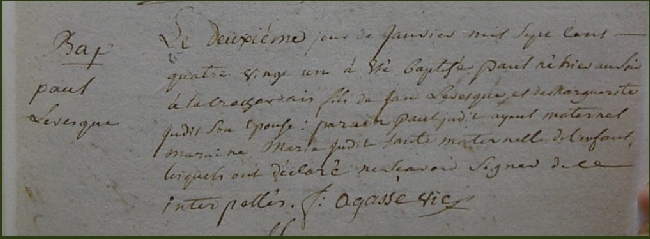 Bap
paul
Levesque
Le deuxiéme jour de Janvier mil sept cent
quatre vingt un à été baptisé paul né hier au soir
à la fils de Jan Levesque et de Marguerite
judit son épouse : parain paul judit ayeul maternel
maraine Marie judit tante maternelle de l'enfant,
lesquels ont déclaré ne savoir signer de ce
interpellés. f: agasse vic